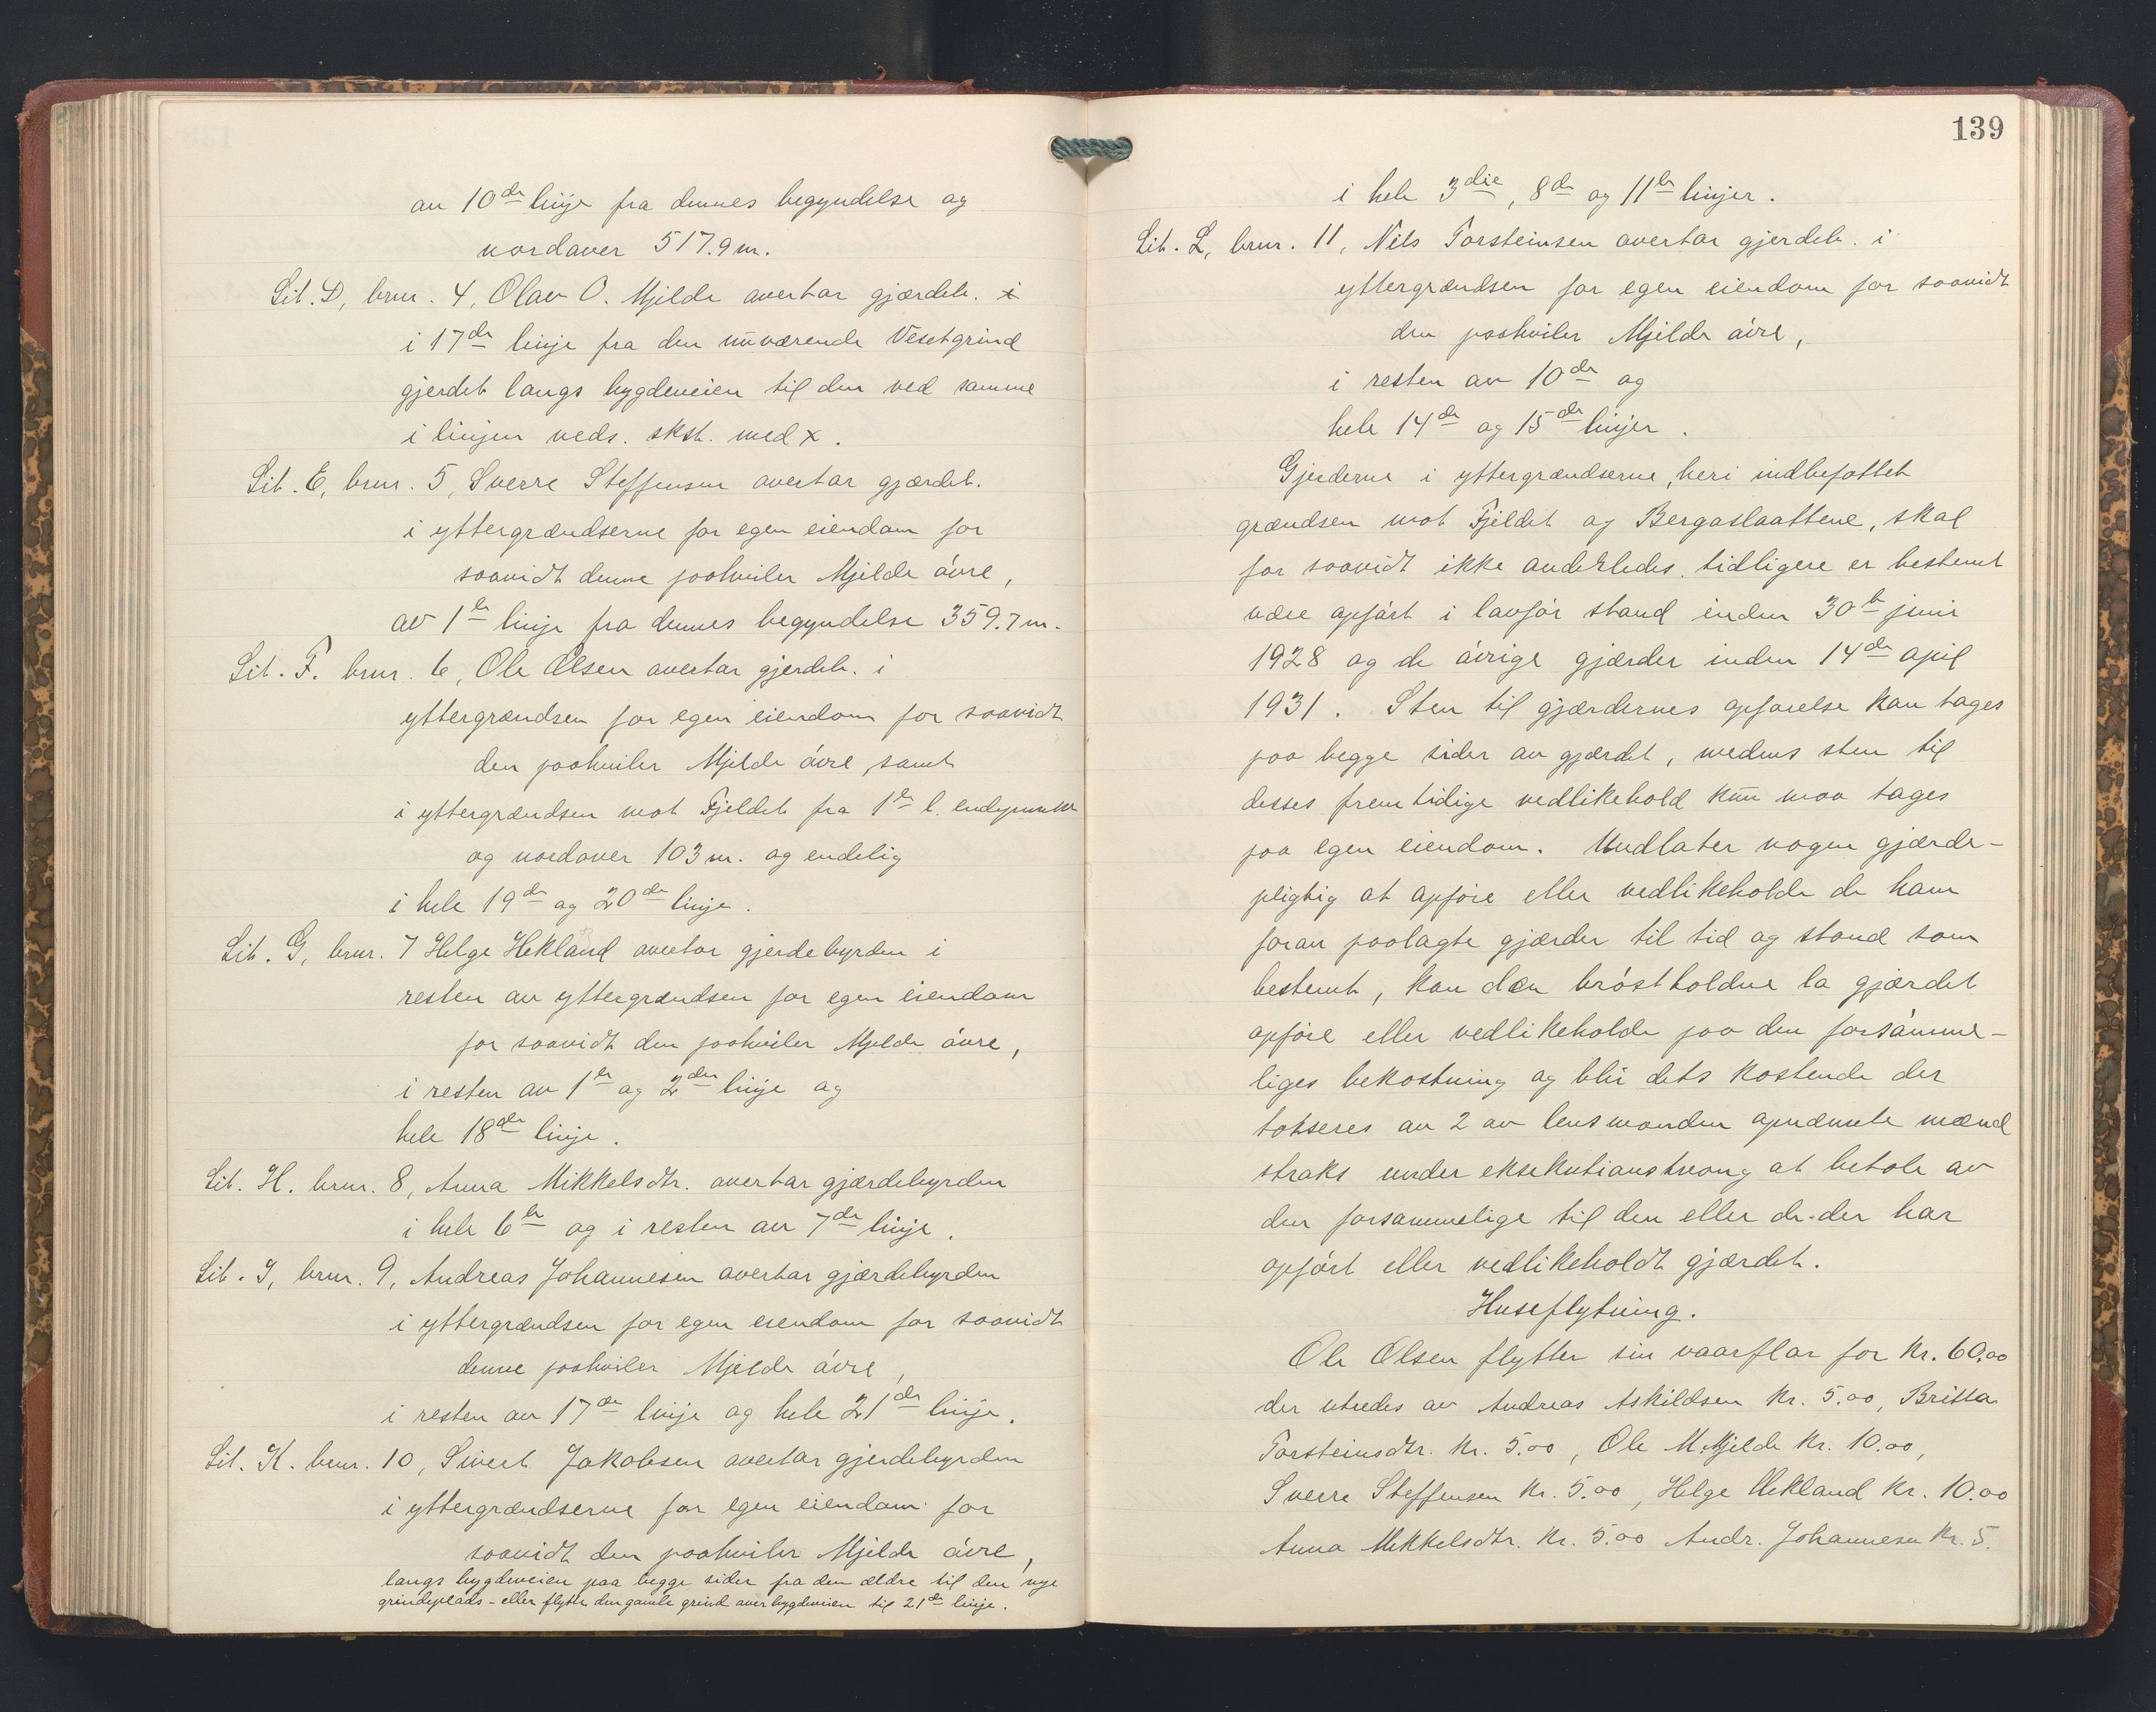 av 10de linje fra dennes begyndelse og
nordover 517.9 m.
Lit. D, brnr. 4, Olav O. Mjelde overtar gjærdeb. i
i 17de linje fra den nuværende Vesetgrind
gjerdet langs bygdeveien til den ved samme
i linjen neds. skst. med x.
Lit. E, brnr. 5, Sverre Steffensen overtar gjærdeb.
i yttergrændserne for egen eiendom for
saavidt denne paahviler Mjelde øvre,
av 1ste linje fra dennes begyndelse 359.7 m.
Lit. F. brnr. 6, Ole Olsen overtar gjerdeb. i
yttergrændsen for egen eiendom for saavidt
den paahviler Mjelde øvre, samt
i yttergrændsen mot Fjeldet fra 1ste l. endepunkt
og nordover 103 m. og endelig
i hele 19de og 20de linje.
Lit. G, brnr. 7 Helge Hekland overtar gjerdebyrden i
resten av yttergrændsen for egen eiendom
for saavidt den paahviler Mjelde øvre,
i resten av 1ste og 2den linje og
hele 18de linje.
Lit. H. brnr. 8, Anna Mikkelsdtr. overtar gjærdebyrden
i hele 6te og i resten av 7de linje.
Lit. I, brnr. 9, Andreas Johannesen overtar gjærdebyrden
i yttergrændsen for egen eiendom for saavidt
denne paahviler Mjelde øvre,
i resten av 17de linje og hele 21de linje.
Lit. K. brnr. 10, Sivert Jakobsen overtar gjerdebyrden
i yttergrændserne for egen eiendom for
saavidt den paahviler Mjelde øvre,
langs bygdeveien paa begge sider fra den ældre til den nye
grindeplads - eller flytte den gamle grind over bygdeveien til 21de linje.
139
i hele 3die, 8de og 11te linjer.
Lit. L, brnr. 11, Nils Torsteinsen overtar gjerdeb. i
yttergrændsen for egen eiendom for saavidt
den paahviler Mjelde øvre,
i resten av 10de og
hele 14de og 15de linjer.
Gjerderne i yttergrændserne, heri indbefattet
grændsen mot Fjeldet og Bergaslaattene, skal
for saavidt ikke anderledes tidligere er bestemt
være opført i lovfør stand inden 30te juni
1928 og de øvrige gjærder inden 14de april
1931. Sten til gjærdernes opførelse kan tages
paa begge sider av gjærdet, medens sten til
desses fremtidige vedlikehold kun maa tages
paa egen eiendom. Undlater nogen gjærde-
pligtig at opføre eller vedlikeholde de ham
foran paalagte gjærder til tid og stand som
bestemt, kan den brøstholdne la gjærdet
opføre eller vedlikeholde paa den forsømme-
liges bekostning og blir dets kostende der
takseres av 2 av lensmanden opnævnte mænd
straks under eksekutionstvang at betale av
den forsømmelige til den eller de der har
opført eller vedlikeholdt gjærdet.
Huseflytning.
Ole Olsen flytter sin vaarflor for Kr. 60.00
der utredes av Andreas Askildsen Kr. 5.00, Britta
Torsteinsdtr. Kr. 5.00, Ole M. Mjelde Kr. 10.00,
Sverre Steffensen Kr. 5.00, Helge Hekland Kr. 10.00
Anna Mikkelsdtr. Kr. 5.00 Andr. Johannesen Kr. 5.